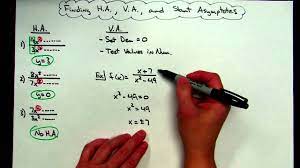 Finding H.A., V.A., and Slant Asymptotes
H.A.
1)
y=3
2)
y=0
3)
No H.A.
V.A.
- Set Den = 0
- Test Values in Num.
Ex) f(x) = x+7
x²-49
x²-49=0
x²=49
x=±7